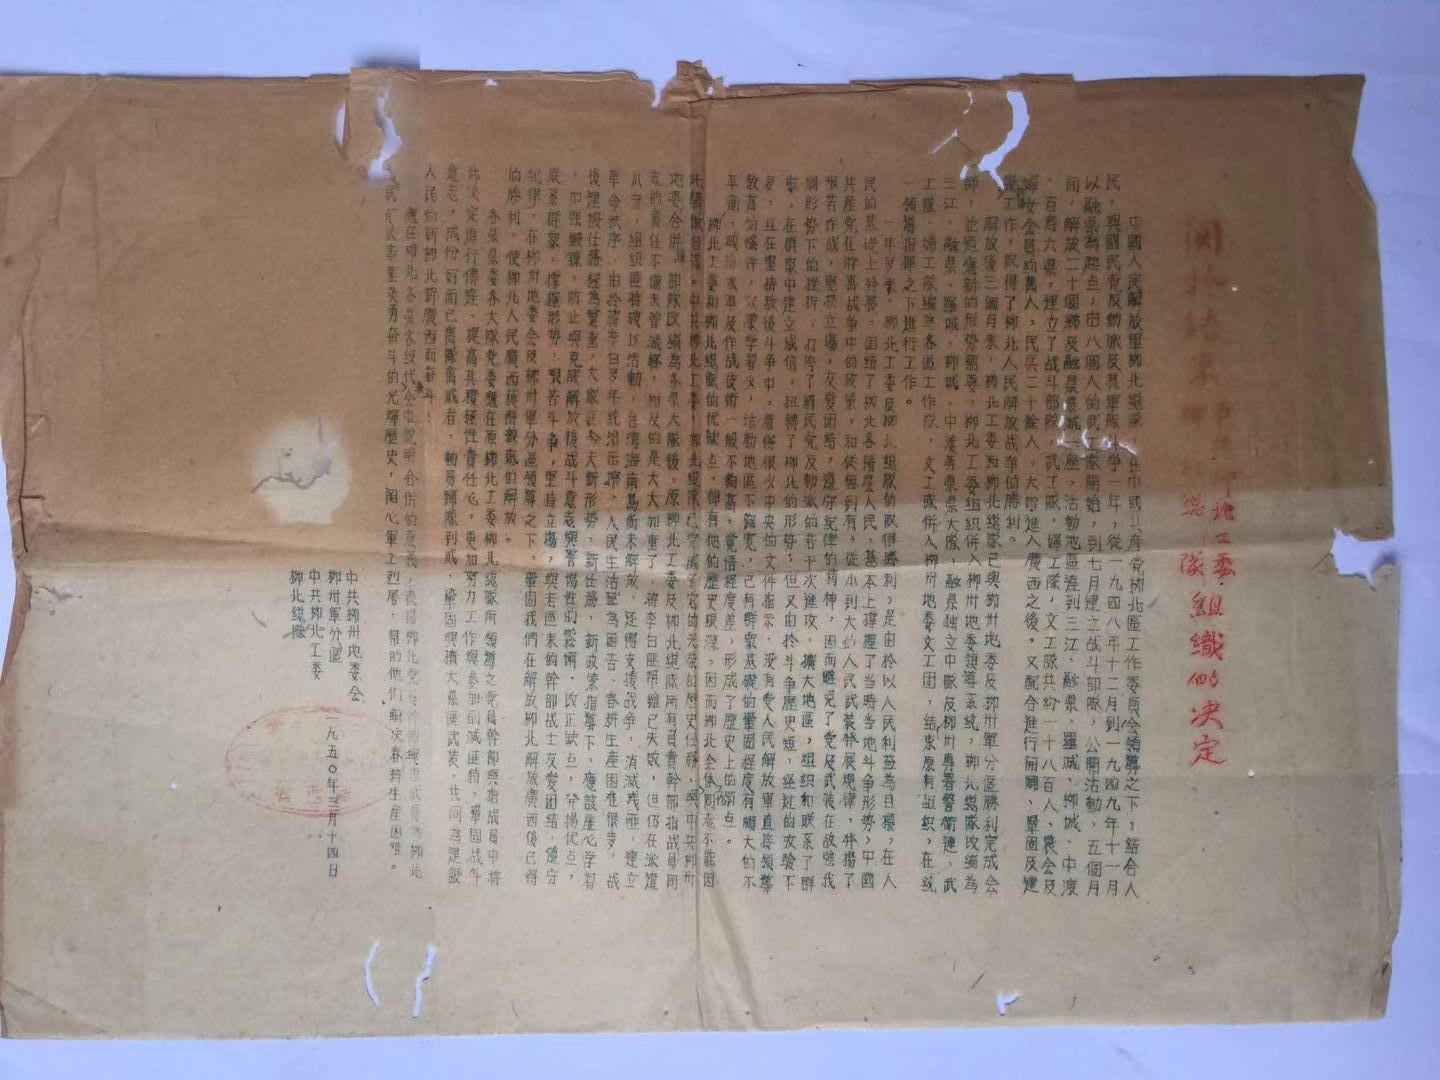 關於結束
柳北工委
總隊
組織的決定
中國人民解放軍柳北總隊，在中國共產党柳北區工作委員会領導之下，結合人
民，與國民党反動派及其軍隊斗爭一年，從一九四八年十二月到一九四九年十一月
以融県為起点，由八個人的武工隊開始，到七月建立战斗部隊，公開活動，五個月
間，解放二十個鄉及融県県城一座，活動地區達到三江、融県、羅城、柳城、中渡
、百寿六県，建立了战斗部隊，武工隊，婦工隊，文工隊共約一十八百人，農会及
婦女会員約萬人，民兵二十餘人，大軍進入廣西之後，又配合進行開闢，鞏固及建
設工作，取得了柳北人民解放战争的勝利。
解放後三個月來，柳北工委和柳北總隊已與柳卅地委及柳卅軍分區勝利完成会
師，並適應新的形勢需要，柳北工委組織併入柳卅地委領導系統，柳北總隊改編為
三江、融県、羅城、柳城、中渡等県県大隊，融県独立中隊及柳卅專署警衛連，武
工隊、婦工隊編為各區工作隊，文工隊併入柳卅地委文工团，結束原有組織，在統
一領導指揮之下進行工作。
一年多來，柳北工委及柳北總隊的取得勝利，是由於以人民利益為目標，在人
民的基礎上發展：团結了柳北各階層人民，基本上掌握了当時当地斗爭形勢，中國
共產党在游擊战爭中的政策，和從無到有，從小到大的人民武裝發展規律，發揚了
艱苦作战，堅持立場，友愛团結，遵守紀律的精神，因而避免了党及武裝在敌強我
弱形勢下的挫折，打垮了國民党反動派的若干次進攻，擴大地區，組織和联系了群
眾，在群眾中建立威信，扭轉了柳北的形勢；但又由於斗爭歷史短，經过的攷驗不
多，且在堅持敌後斗爭中，看得很少中央的文件指示，没有受人民解放軍直接領導
教育的條件，政策学習少，活動地區不夠寬，已有群眾基礎的鞏固程度有頗大的不
平衡，政治水平及作战技術一般不夠高，覚悟程度差，形成了歷史上的弱点。
柳北工委和柳北總隊的优缺点，都有他的歷史根源，因而柳北全体同志不能因
此驕傲自滿。中共柳北工委、柳北總隊已完成了它的光荣的歷史任務，與中共柳卅
地委合併，部隊改編為各県大隊後，原柳北工委及柳北總隊所有負責幹部指战員同
志的責任不僅未曾減輕，相反的是大大加重了，蔣李白匪帮雖已失敗，但仍在派遣
爪牙，組織匪特破坏活動，台湾海南島尚未解放，还得支援战争，消滅残匪，建立
革命秩序，由於蔣李白多年統治压榨，人民生活極為困苦，春耕生產困难很多，战
後建設任務極為繁重，大家在今天新形勢，新任務，新政策指導下，應該虚心学習
，加強鍛鍊，防止與克服解放後战斗意志與警惕性的鬆懈，改正缺点，发揚优点，
联系群眾，掌握形勢，艱苦斗争，堅持立場，與老區來的幹部战士友愛团結，遵守
紀律，在柳卅地委会及柳卅軍分區領導之下，鞏固我們在解放柳北解放廣西後已得
的勝利，使柳北人民廣西獲得徹底的解放。
各県県委各大隊党委應在原柳北工委柳北總隊所領導之党員幹部與指战員中將
此決定進行傳達，提高其積極性責任心，更加努力工作與參加剿滅匪特，鞏固战斗
意志，成份好而已离隊离战者，動員歸隊到战，鞏固與擴大県區武裝，共同為建設
人民的新柳北新廣西而奋斗！
應在柳北各県各级代表会中說明合併的意義，表揚柳北党
人民解放事業英勇奋斗的光輝歷史，関心軍工烈屬，幫助他們解决春耕生產困难。
中共柳卅地委会
柳卅軍分區
中共柳北工委
柳北總隊
一九五〇年三月十四日